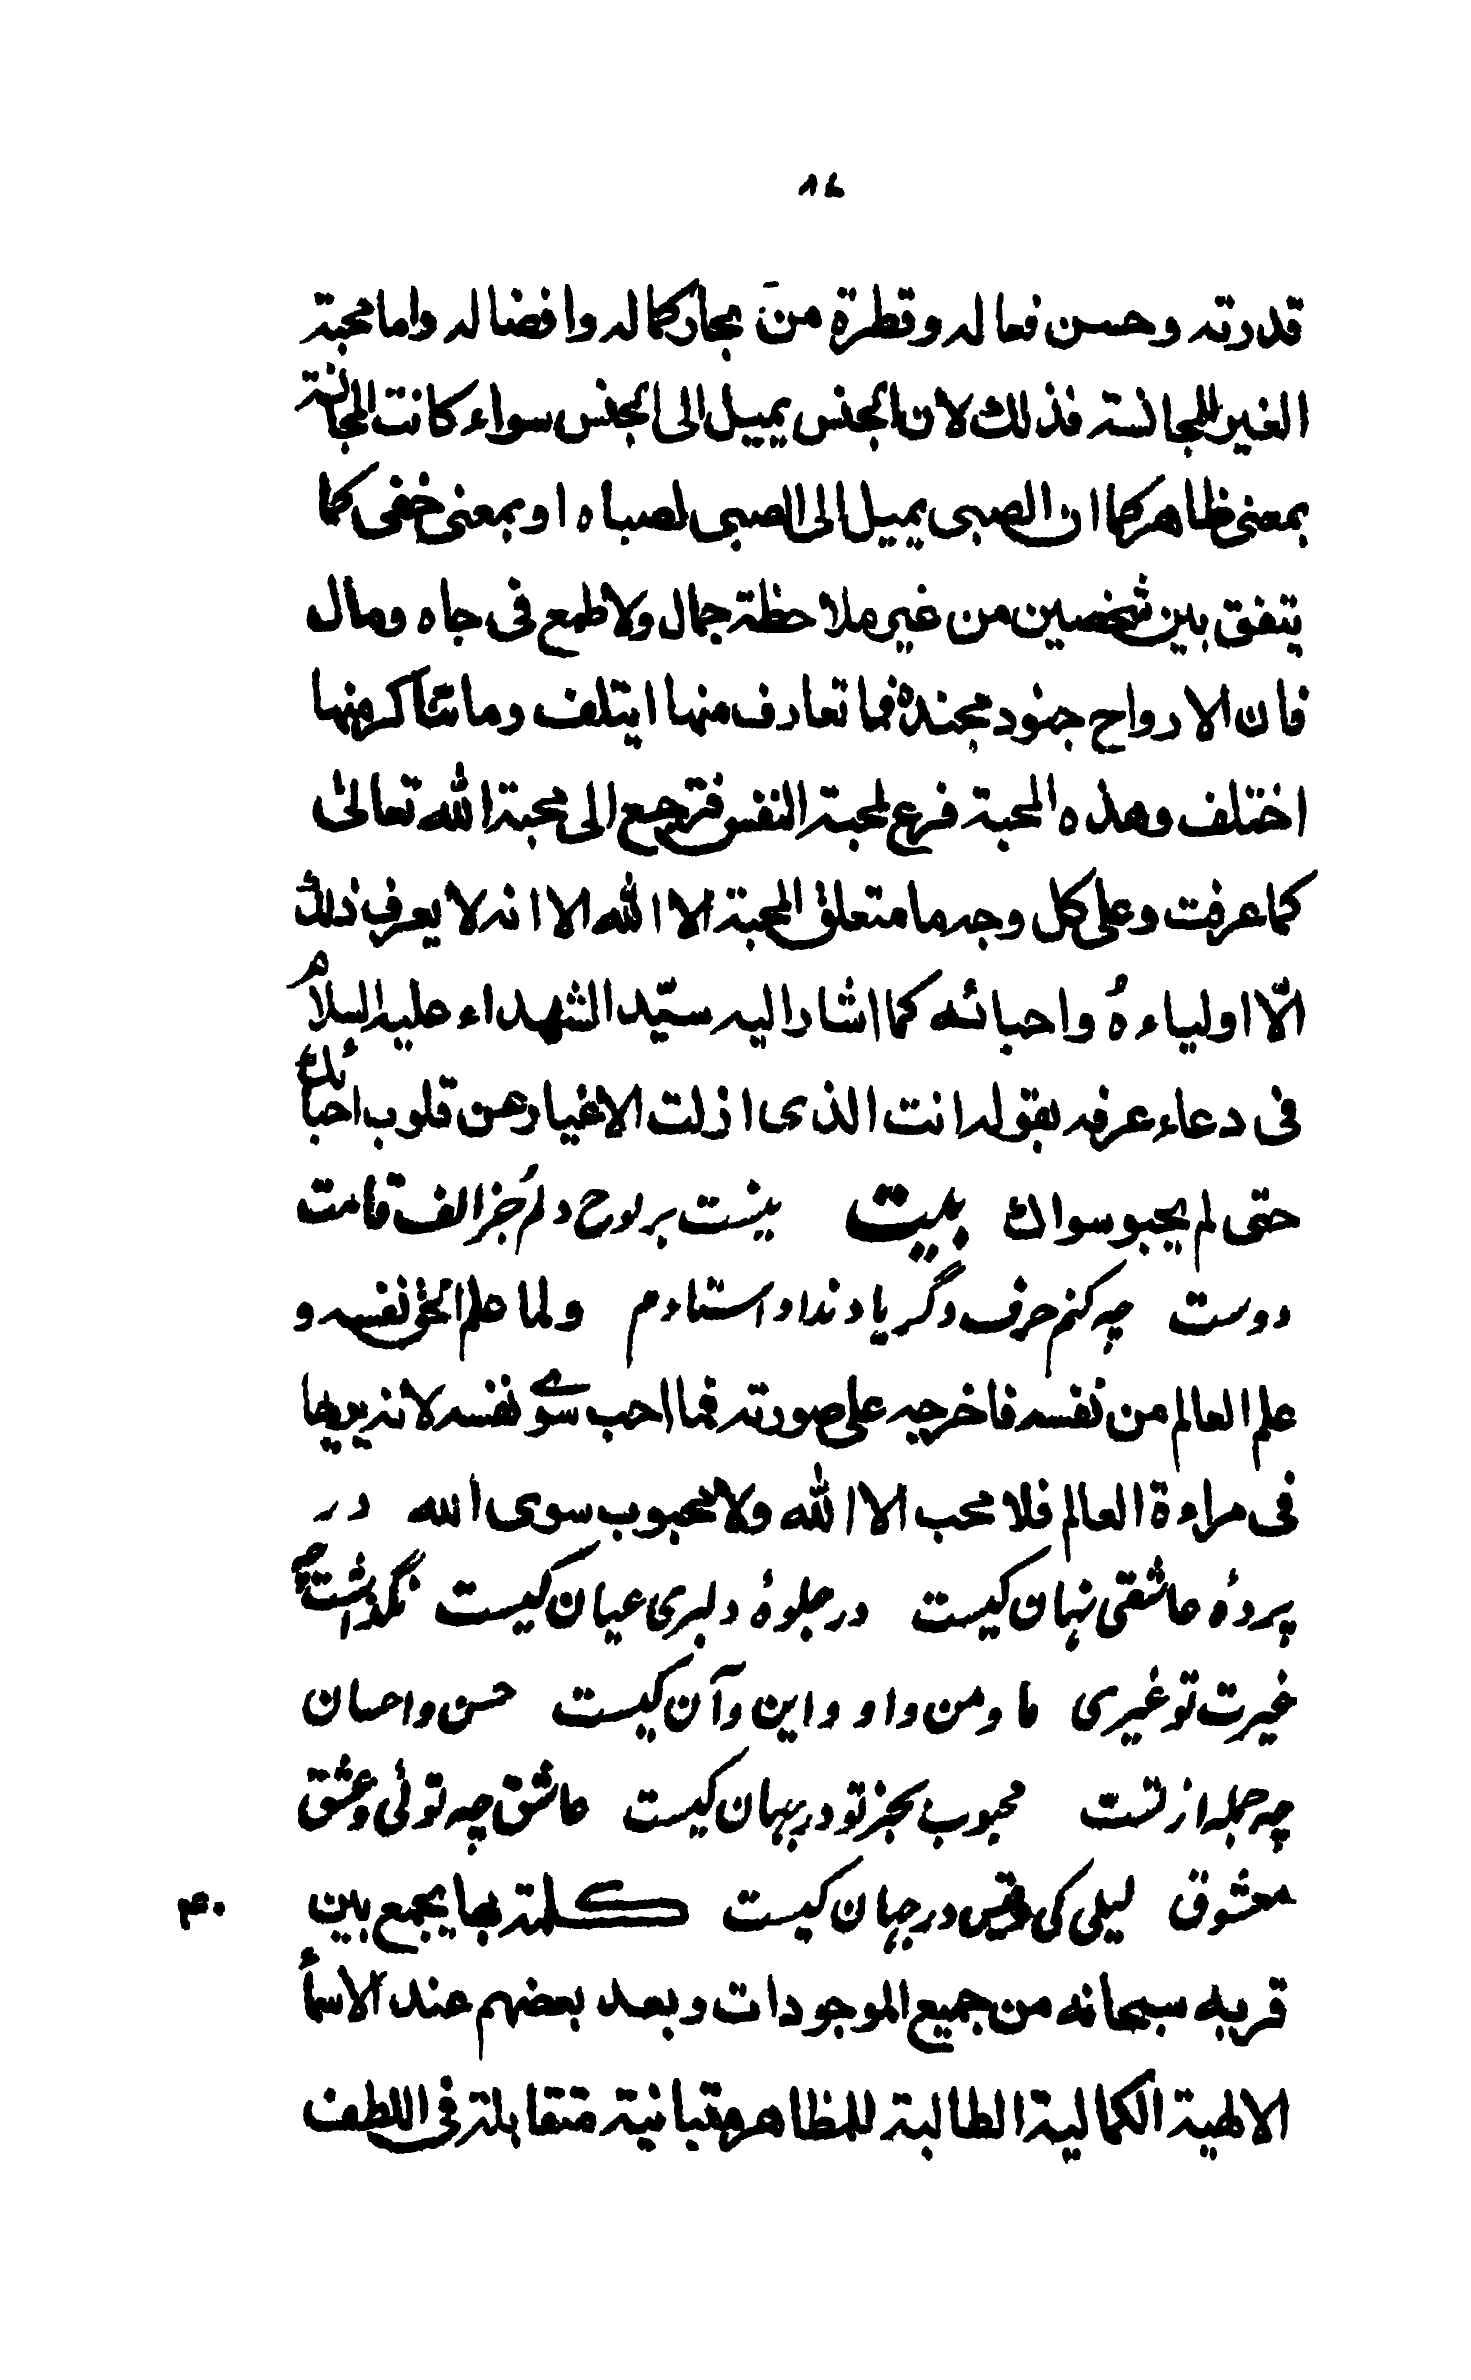 ٨٤
قدرته وحسن فعاله وقطرة من بحار كماله وافضاله واما محبة
الغير للمجانسة فذلك لان الجنس يميل الى الجنس سواء كانت المجانسة
بمعنى ظاهر كما ان الصبى يميل الى الصبى لصباه او بمعنى خفى كما
يتفق بين شخصين من غير ملاحظة جمال ولا طمع فى جاه ومال
فان الارواح جنود مجندة فما تعارف منها ايتلف وما تناكر منها
اختلف وهذه المحبة فرع لمحبة النفس فترجع الى محبة الله تعالىٰ
كما عرفت وعلى كل وجه ما متعلق المحبة الا الله الا انه لا يعرف ذلك
الّا اولياءهُ واحبائه كما اشار اليه سيّد الشهداء عليه السلام
فى دعاء عرفه بقوله انت الذى ازلت الاغيار عن قلوب احبائك
حتى لم يحبو سواك بيت نيست بر لوح دلم جز الف قامت
دوست چه كنم حرف دگر ياد نداد استادم ولما علم الحق نفسه و
علم العالم من نفسه فاخرجه على صورته فما احب سوى نفسه لانه يريها
فى مراءة العالم فلا محب الا الله ولا محبوب سوى الله در
پردۀ عاشقى نهان كيست در جلوۀ دلبرى عيان كيست نگذاشت چه
غيرت تو غيرى ما ومن واو واين وآن كيست حسن واحسان
چه جمله از تست محبوب بجز تو در جهان كيست عاشق چه توئى وعشق
معشوق ليلى كى وقيس در جهان كيست كلمة بها يجمع بين ۴۰
قربه سبحانه من جميع الموجودات وبعد بعضهم عند الاسمأ
الالهية الكمالية الطالبة للمظاهر متبانية متقابلة فى اللطف